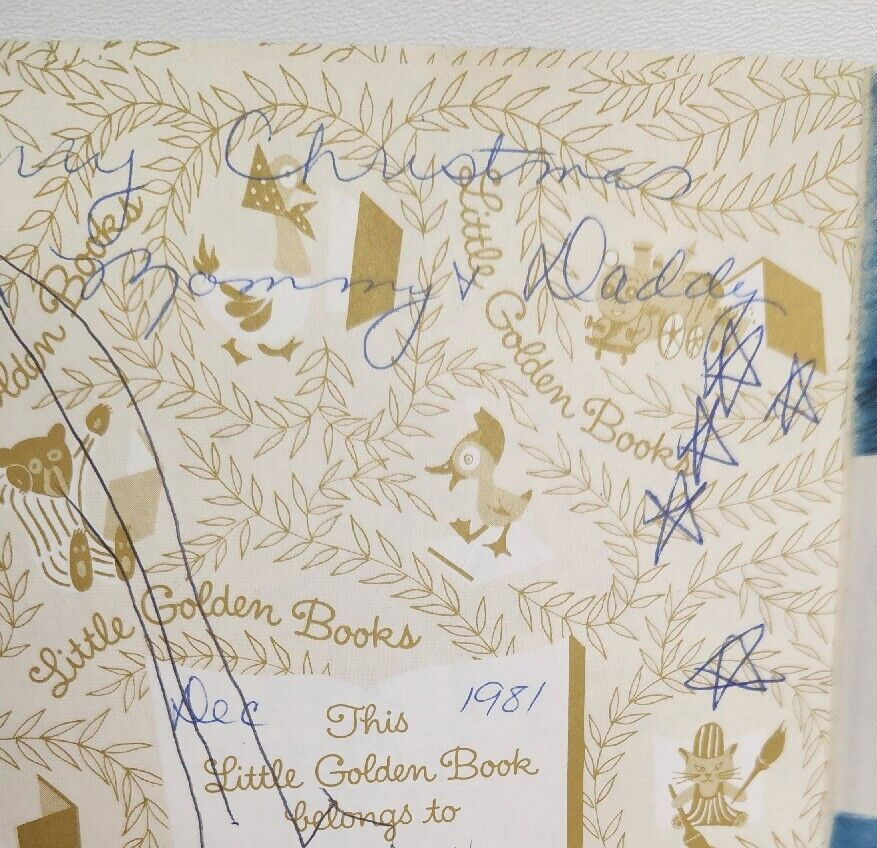 rry Christmas
Mommy & Daddy
Little Golden Books
olden Books
Little Golden Books
Dec 1981
This
Little Golden Book
belongs to